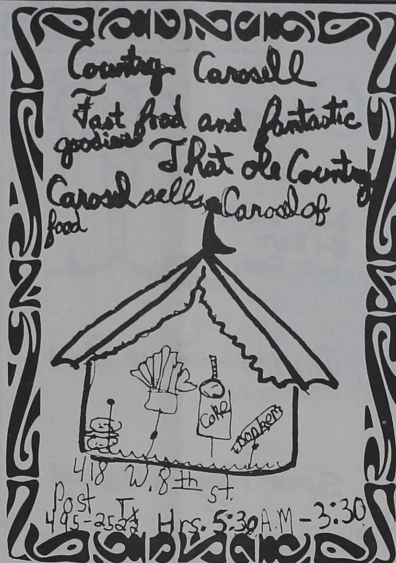 Country Carosell
Fast food and fantastic
goodies That ole Country
Carosel sells a Carosel of
food
Coke
418 W. 8th st.
Post Tx
495-2522 Hrs. 5:30 A.M - 3:30